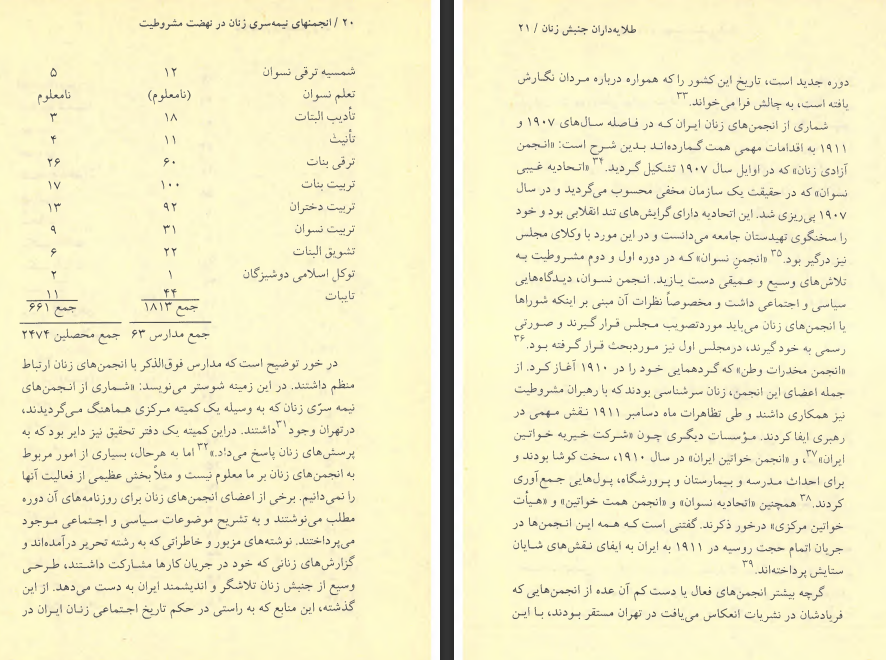 ۲۰ / انجمنهای نیمه‌سری زنان در نهضت مشروطیت
شمسیه ترقی نسوان ۱۲ ۵
تعلم نسوان (نامعلوم) نامعلوم
تأدیب البنات ۱۸ ۳
تأنیث ۱۱ ۴
ترقی بنات ۶۰ ۲۶
تربیت بنات ۱۰۰ ۱۷
تربیت دختران ۹۲ ۱۳
تربیت نسوان ۳۱ ۹
تشویق البنات ۲۲ ۶
توکل اسلامی دوشیزگان ۱ ۲
تایبات ۴۴ ۱۱
جمع ۱۸۱۳ جمع ۶۶۱
جمع مدارس ۶۳ جمع محصلین ۲۴۷۴
در خور توضیح است که مدارس فوق‌الذکر با انجمن‌های زنان ارتباط
منظم داشتند. در این زمینه شوستر می‌نویسد: «شماری از انجمن‌های
نیمه سرّی زنان که به وسیله یک کمیته مرکزی هماهنگ می‌گردیدند،
درتهران وجود۳۱داشتند. دراین کمیته یک دفتر تحقیق نیز دایر بود که به
پرسش‌های زنان پاسخ می‌داد.»۳۲ اما به هرحال، بسیاری از امور مربوط
به انجمن‌های زنان بر ما معلوم نیست و مثلاً بخش عظیمی از فعالیت آنها
را نمی‌دانیم. برخی از اعضای انجمن‌های زنان برای روزنامه‌های آن دوره
مطلب می‌نوشتند و به تشریح موضوعات سیاسی و اجتماعی موجود
می‌پرداختند. نوشته‌های مزبور و خاطراتی که به رشته تحریر درآمده‌اند و
گزارش‌های زنانی که خود در جریان کارها مشارکت داشتند، طرحی
وسیع از جنبش زنان تلاشگر و اندیشمند ایران به دست می‌دهد. از این
گذشته، این منابع که به راستی در حکم تاریخ اجتماعی زنان ایران در
طلایه‌داران جنبش زنان / ۲۱
دوره جدید است، تاریخ این کشور را که همواره درباره مردان نگارش
یافته است، به چالش فرا می‌خواند.۳۳
شماری از انجمن‌های زنان ایران که در فاصله سال‌های ۱۹۰۷ و
۱۹۱۱ به اقدامات مهمی همت گمارده‌اند بدین شرح است: «انجمن
آزادی زنان» که در اوایل سال ۱۹۰۷ تشکیل گردید.۳۴ «اتحادیه غیبی
نسوان» که در حقیقت یک سازمان مخفی محسوب می‌گردید و در سال
۱۹۰۷ پی‌ریزی شد. این اتحادیه دارای گرایش‌های تند انقلابی بود و خود
را سخنگوی تهیدستان جامعه می‌دانست و در این مورد با وکلای مجلس
نیز درگیر بود.۳۵ «انجمنِ نسوان» که در دوره اول و دوم مشروطیت به
تلاش‌های وسیع و عمیقی دست یازید. انجمن نسوان، دیدگاه‌هایی
سیاسی و اجتماعی داشت و مخصوصاً نظرات آن مبنی بر اینکه شوراها
یا انجمن‌های زنان می‌باید موردتصویب مجلس قرار گیرند و صورتی
رسمی به خود گیرند، درمجلس اول نیز موردبحث قرار گرفته بود.۳۶
«انجمن مخدرات وطن» که گردهمایی خود را در ۱۹۱۰ آغاز کرد. از
جمله اعضای این انجمن، زنان سرشناسی بودند که با رهبران مشروطیت
نیز همکاری داشتند و طی تظاهرات ماه دسامبر ۱۹۱۱ نقش مهمی در
رهبری ایفا کردند. مؤسسات دیگری چون «شرکت خیریه خواتین
ایران»۳۷، و «انجمن خواتین ایران» در سال ۱۹۱۰، سخت کوشا بودند و
برای احداث مدرسه و بیمارستان و پرورشگاه، پول‌هایی جمع‌آوری
کردند.۳۸ همچنین «اتحادیه نسوان» و «انجمن همت خواتین» و «هیأت
خواتین مرکزی» درخور ذکرند. گفتنی است که همه این انجمن‌ها در
جریان اتمام حجت روسیه در ۱۹۱۱ به ایران به ایفای نقش‌های شایان
ستایش پرداخته‌اند.۳۹
گرچه بیشتر انجمن‌های فعال یا دست کم آن عده از انجمن‌هایی که
فریادشان در نشریات انعکاس می‌یافت در تهران مستقر بودند، با این